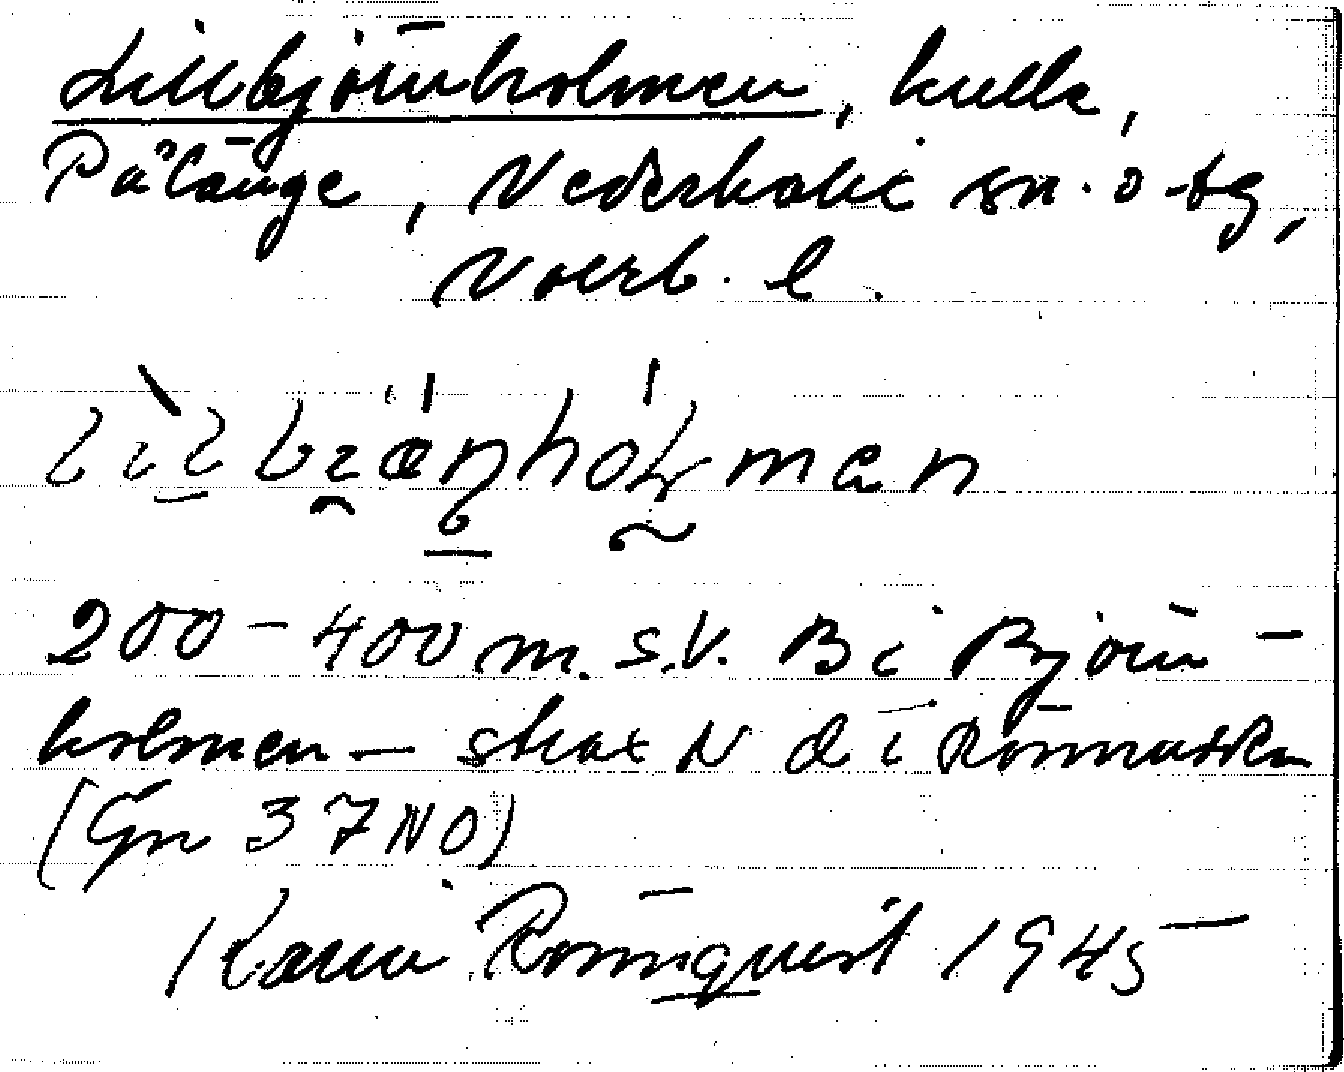 Lillbjörnholmen, kulle,
Pålänge, Nederkalix sn. o tg,
Norrb. l.
200–400 m. S.V. B i Björn-
holmen — strax N d i Rönnäsken
(Gn 37 NO)
Karin Rönnqvist 1945